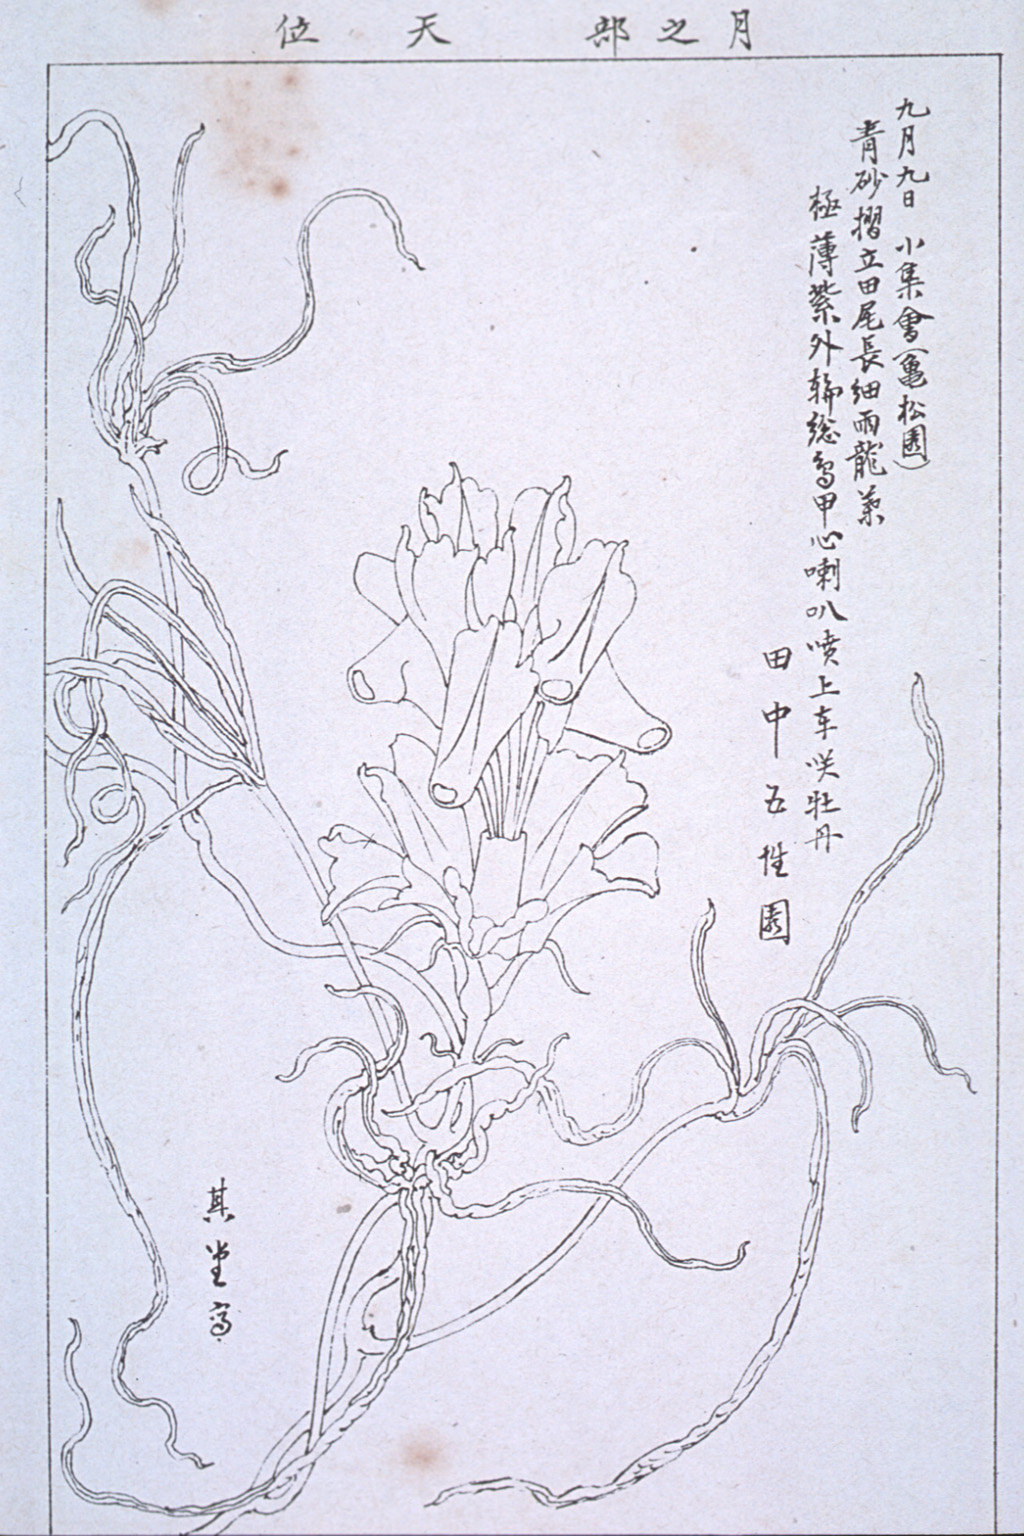 月之部 天位
九月九日 小集會(亀松園)
青砂摺立田尾長細雨龍葉
極薄紫外輪総鳥甲心喇叭噴上車咲牡丹
田中五性園
其堂写